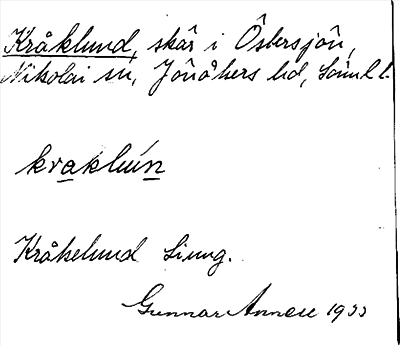 Kråklund, skär i Östersjön,
Nikolai sn, Jönåkers hd, Söml l.
kvakluń
Kråkelund Ljung.
Gunnar Annell 1933